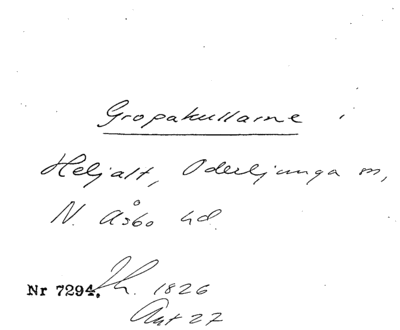 Gropakullarne i
Heljalt, Oderljunga sn,
N. Åsbo hd.
Nr 7294. Jh. 1826
Akt 27